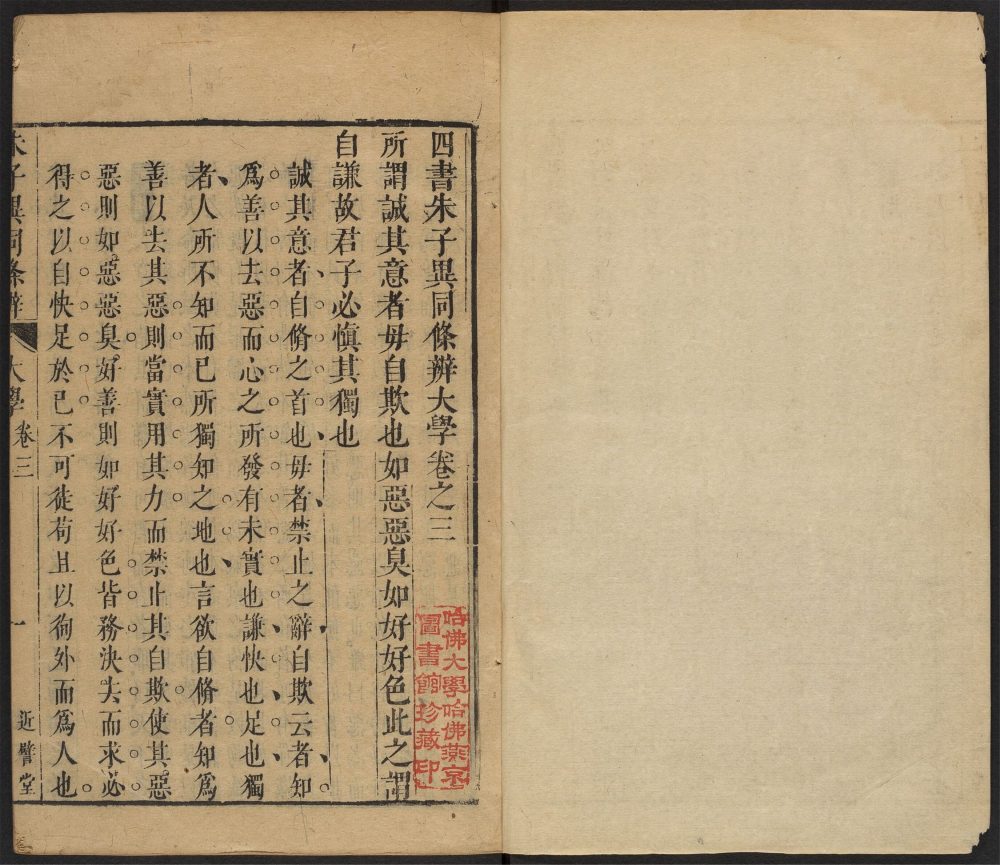 四書朱子異同條辨大學卷之三
所謂誠其意者毋自欺也如惡惡臭如好好色此之謂
自謙故君子必愼其獨也
誠其意者自脩之首也毋者禁止之辭自欺云者知
爲善以去惡而心之所發有未實也謙快也足也獨
者人所不知而已所獨知之地也言欲自脩者知爲
善以去其惡則當實用其力而禁止其自欺使其惡
惡則如惡惡臭好善則如好好色皆務決去而求必
得之以自快足於已不可徒苟且以徇外而爲人也
朱子異同條辨 大學卷三 一 近譬堂
哈佛大學哈佛燕京
圖書館珍藏印